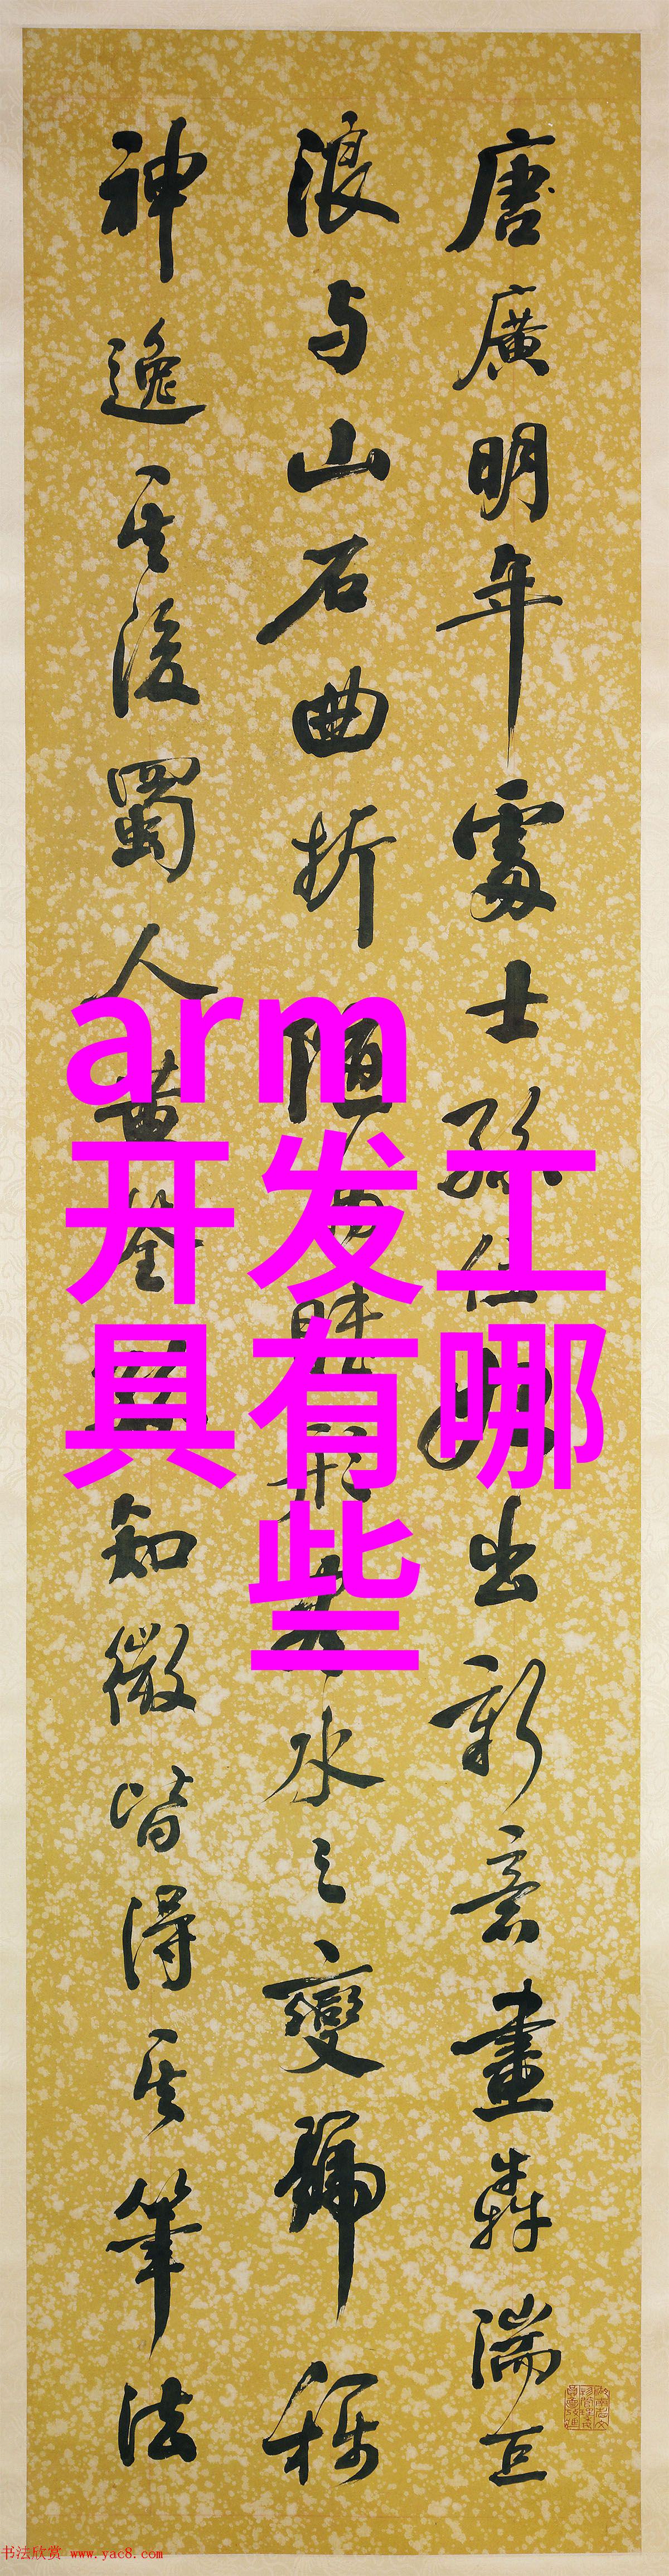 唐廣明年處士孫位始出新意畫犇湍巨
浪与山石曲折随物賦形盡水之變號稱
神逸其後蜀人黃筌孫知微皆得其筆法
arm
开发工
具有哪
些
书法欣赏 www.yac8.com